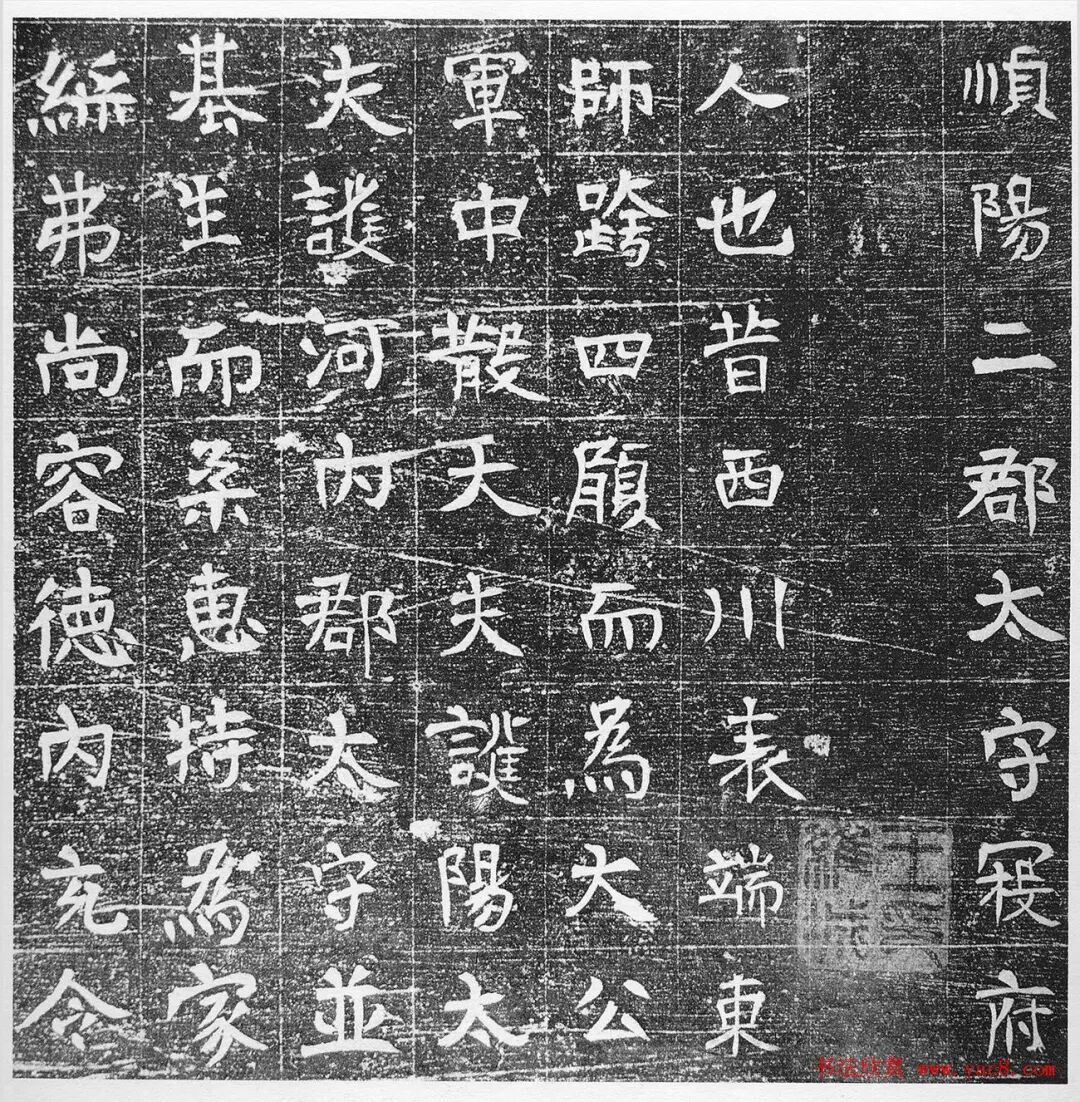 順陽二郡太守寢府
人也昔西川表端東
師跨四顧而為大公
軍中散大夫譙陽太
夫譙河內郡太守並
基生而柔惠特為家
弗尚容德內充令
书法欣赏 www.yac8.com